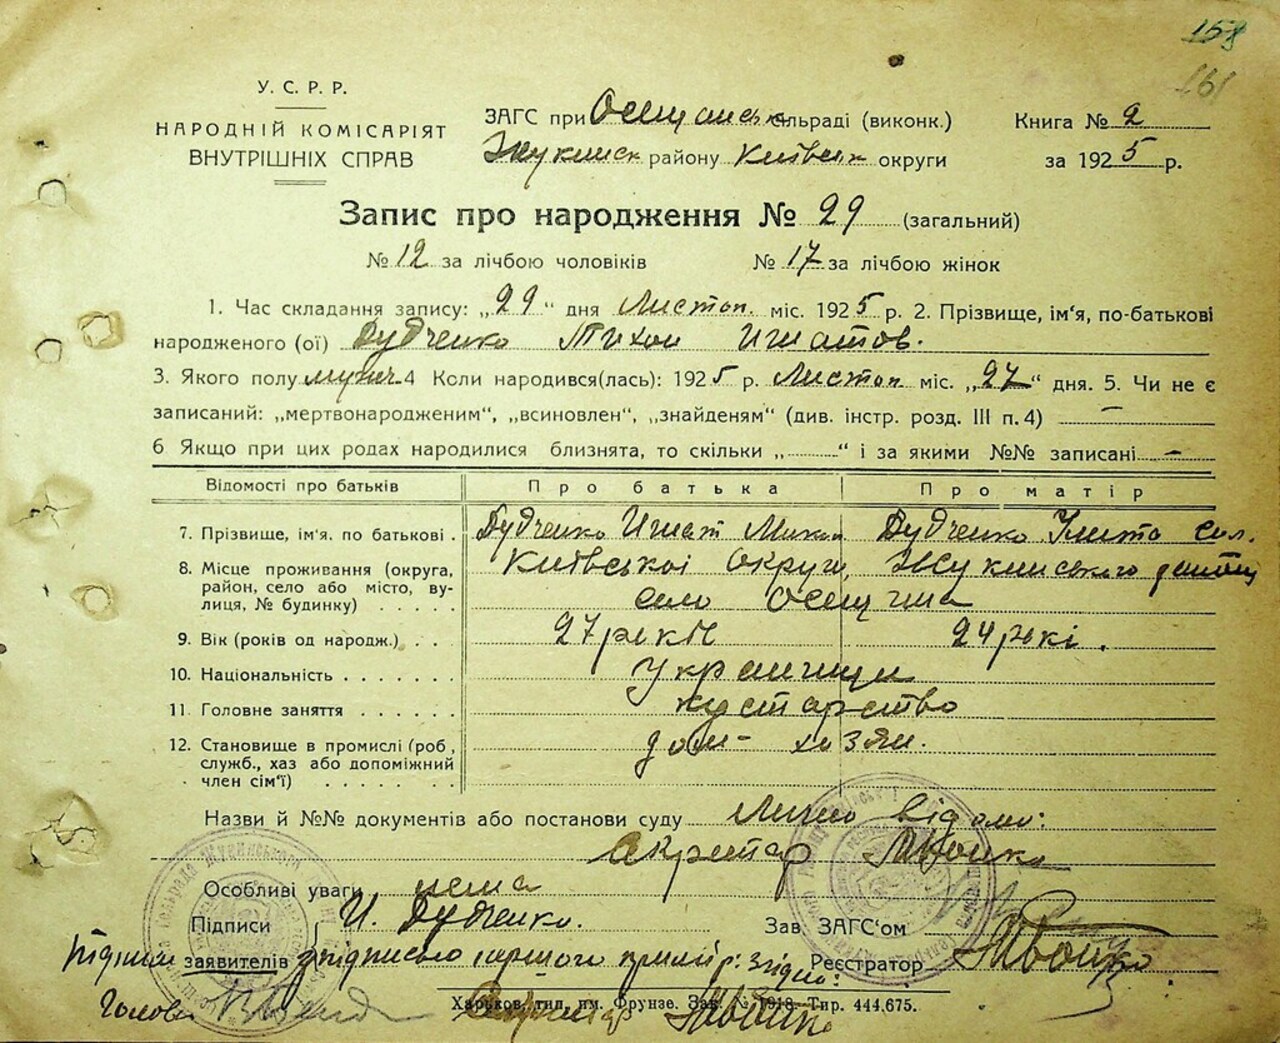 158
161
У. С. Р. Р.
НАРОДНІЙ КОМІСАРІЯТ
ВНУТРІШНІХ СПРАВ
ЗАГС при Осещанськ сільраді (виконк.)
району Київськ округи
Книга № 2
за 1925 р.
Запис про народження № 29 (загальний)
№ 12 за лічбою чоловіків № 17 за лічбою жінок
1. Час складання запису: „29“ дня Листоп. міс. 1925 р. 2. Прізвище, ім'я, по-батькові
народженого (ої) Дудченко Тихон Игнатов.
3. Якого полу мужч. 4 Коли народився(лась): 1925 р. Листоп міс. „27“ дня. 5. Чи не є
записаний: „мертвонародженим“, „всиновлен“, „знайденям“ (див. інстр. розд. III п. 4) —
6 Якщо при цих родах народилися близнята, то скільки „ “ і за якими №№ записані —
Відомості про батьків Про батька Про матір
7. Прізвище, ім'я. по батькові . Дудченко Игнат Микол Дудченко Улита
8. Місце проживання (округа, Київської Округи,
район, село або місто, ву- село Осещина
лиця, № будинку) . . . . .
9. Вік (років од народж.) . . 27 років 24 рокі.
10. Національність . . . . . . . Українци
11. Головне заняття . . . . . . кустарство
12. Становище в промислі (роб, дом- хозяи.
служб., хаз або допоміжний
член сім'ї) . . . . . . .
Назви й №№ документів або постанови суду Лично відомо:
Секретар МБойко
Особливі уваги нема
Підписи И. Дудченко.
Зав. ЗАГС'ом
Підписи заявителів
Реєстратор МБойко
Голова
Харьков, тип. им. Фрунзе. Зак. № 1918. Тир. 444.675.
Секретар МБойко